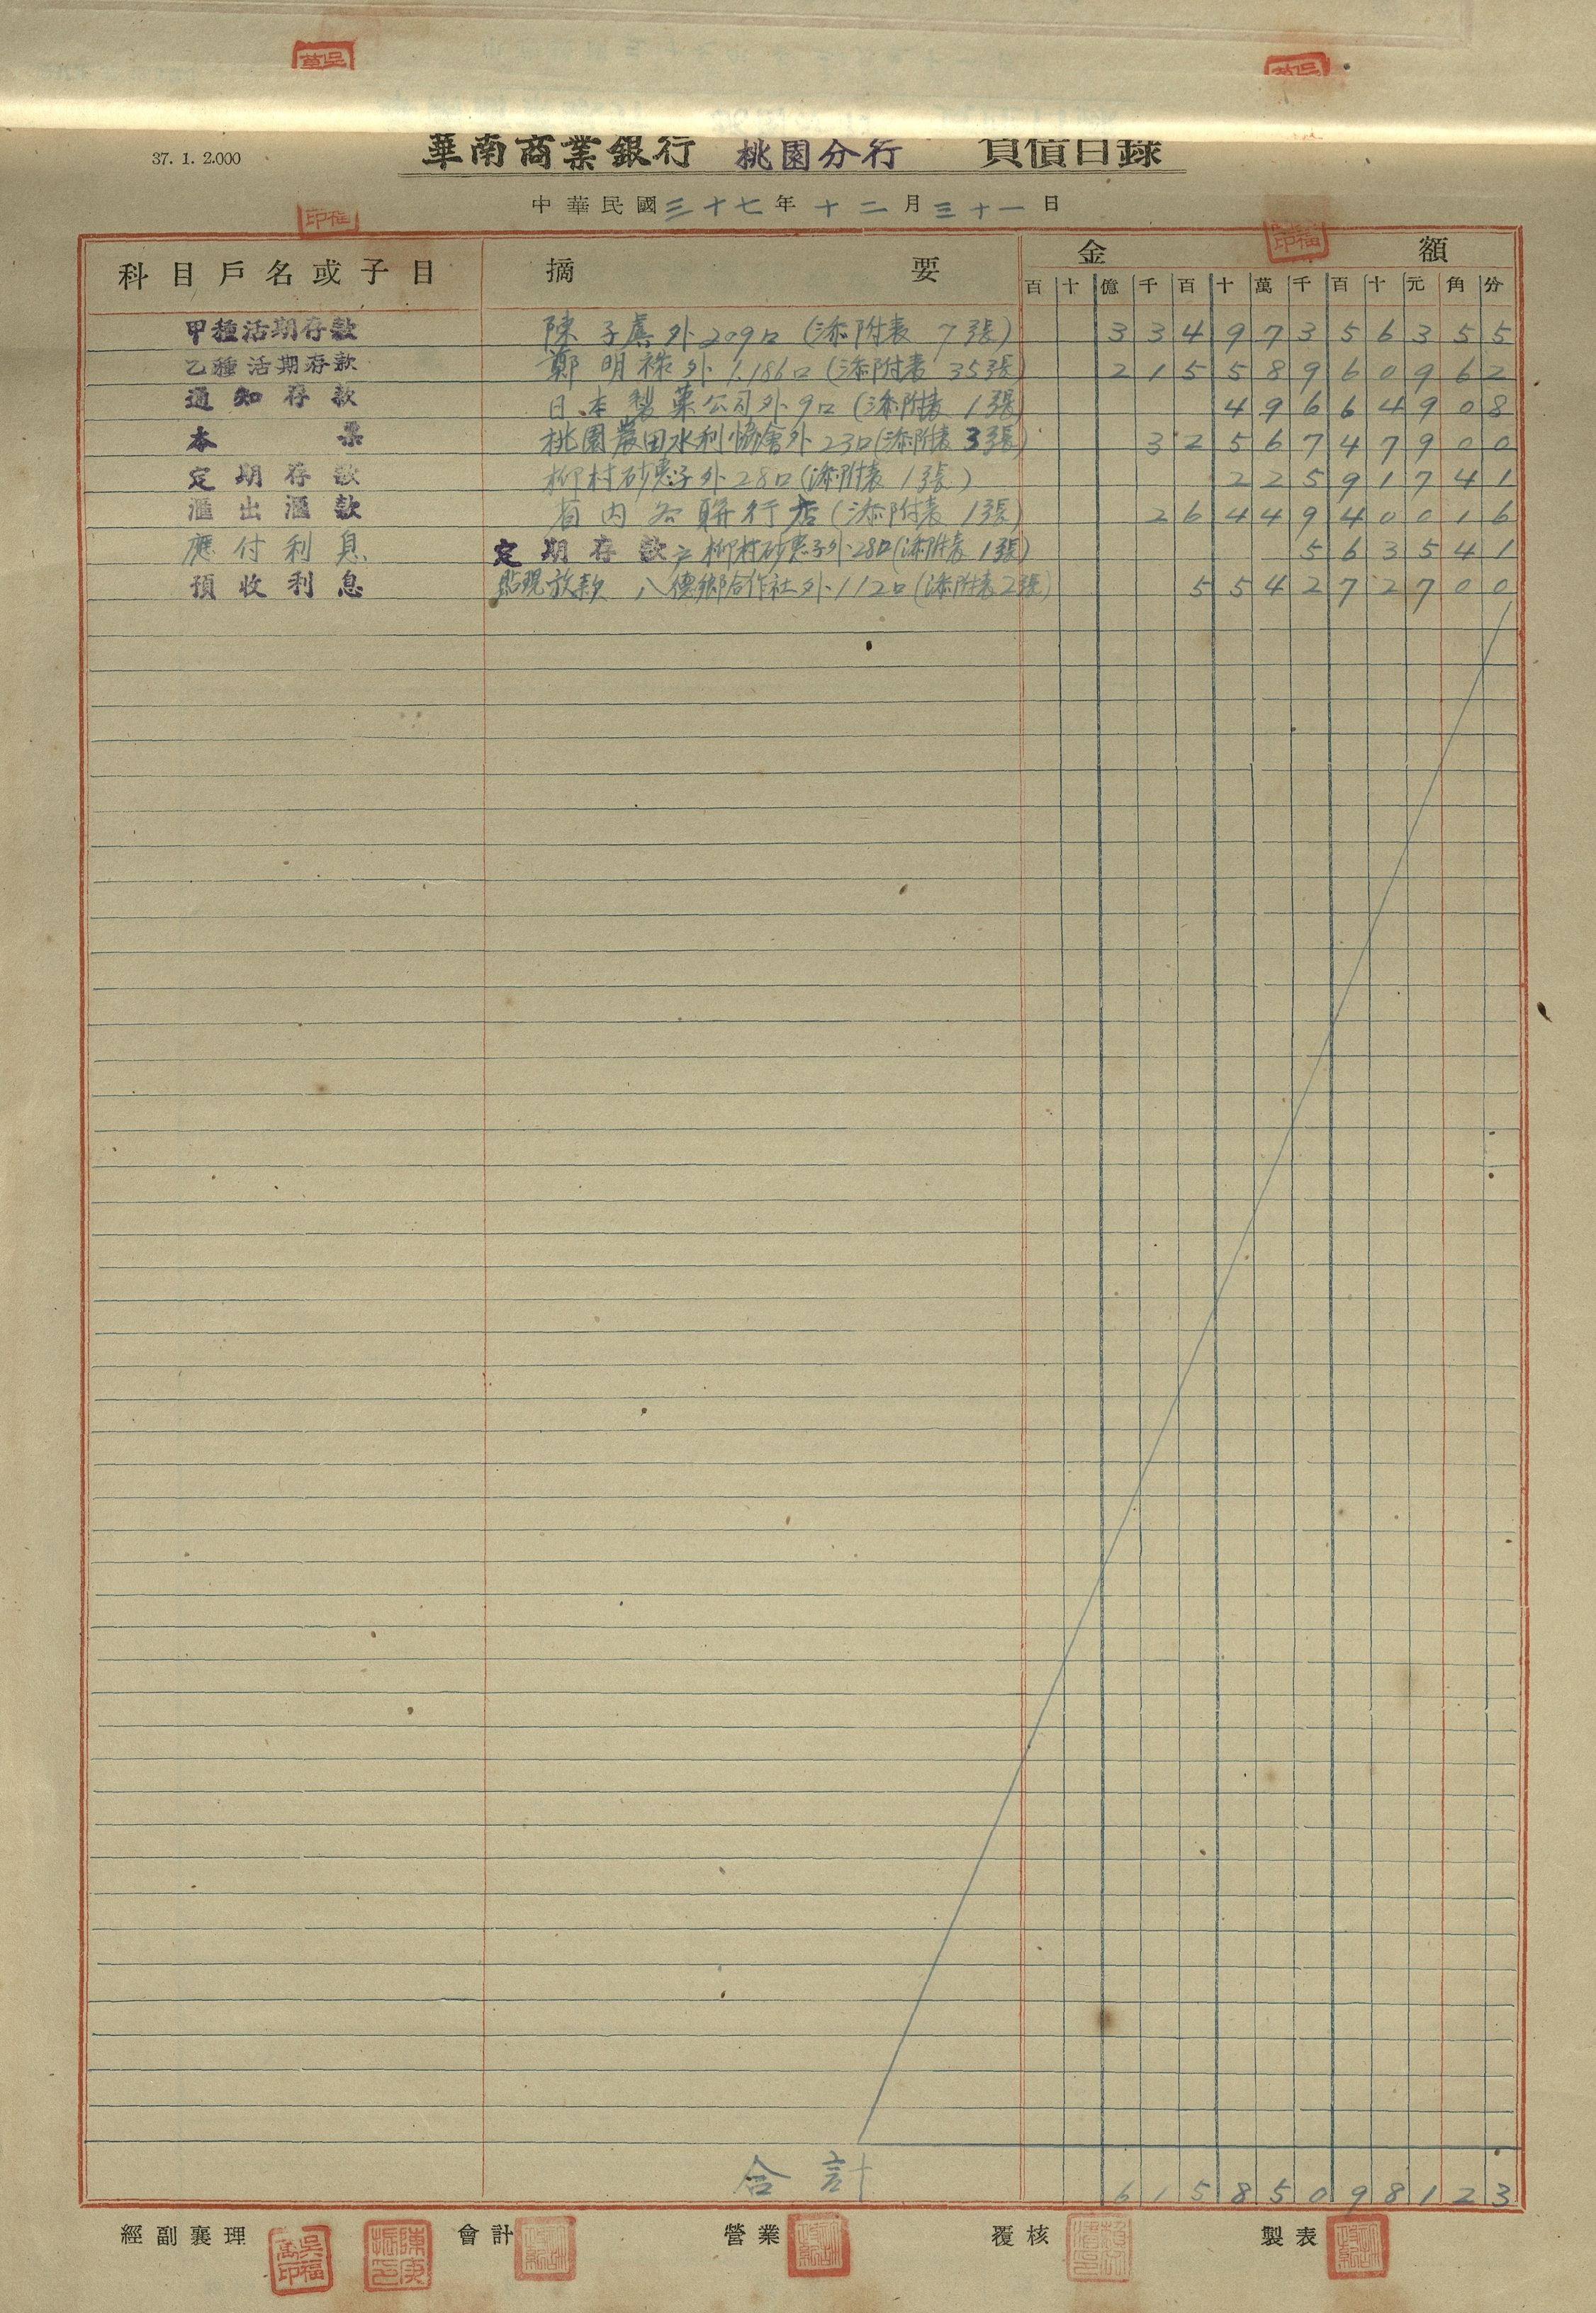 37. 1. 2.000
華南商業銀行 桃園分行 負債目錄
中華民國三十七年十二月三十一日
科目戶名或子目 摘要 金額
百 十 億 千 百 十 萬 千 百 十 元 角 分
甲種活期存款 陳子虞外209口(添附表 7張) 3 3 4 9 7 3 5 6 3 5 5
乙種活期存款 鄭明祿外1.186口(添附表 35張) 2 1 5 5 8 9 6 0 9 6 2
通知存款 日本製菓公司外9口(添附表 1張) 4 9 6 6 4 9 0 8
本票 桃園農田水利協會外23口(添附表 3張) 3 2 5 6 7 4 7 9 0 0
定期存款 柳村砂惠子外28口(添附表 1張) 2 2 5 9 1 7 4 1
滙出滙款 省内各聯行店(添附表 1張) 2 6 4 4 9 4 0 0 1 6
應付利息 定期存款之柳村砂惠子外28口(添附表 1張) 5 6 3 5 4 1
預收利息 貼現放款 八德鄉合作社外112口(添附表2張) 5 5 4 2 7 2 7 0 0
合計 6 1 5 8 5 0 9 8 1 2 3
經副襄理 吳福萬印 會計 營業 覆核 製表